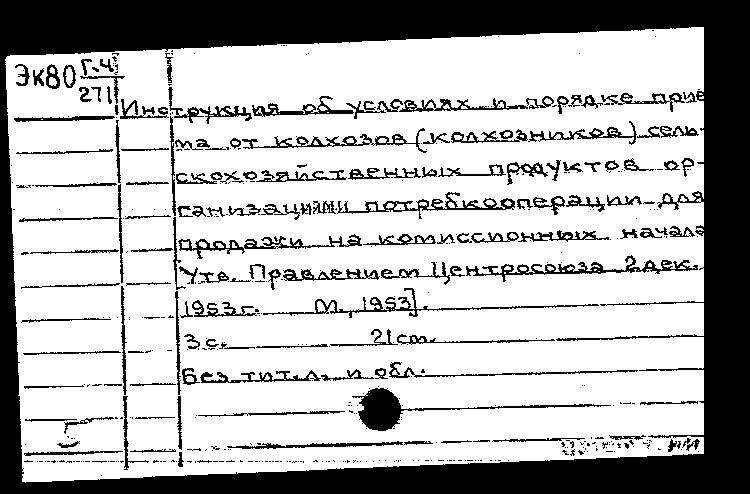 Эк80 Г.Ч
271
Инструкция об условиях и порядке прие
ма от колхозов (колхозников) сель-
скохозяйственных продуктов ор-
ганизациями потребкооперации для
продажи на комиссионных начала
Утв. Правлением Центросоюза 2 дек.
1953 г. М., 1953].
3 с. 21 см.
Без тит. л. и обл.
5